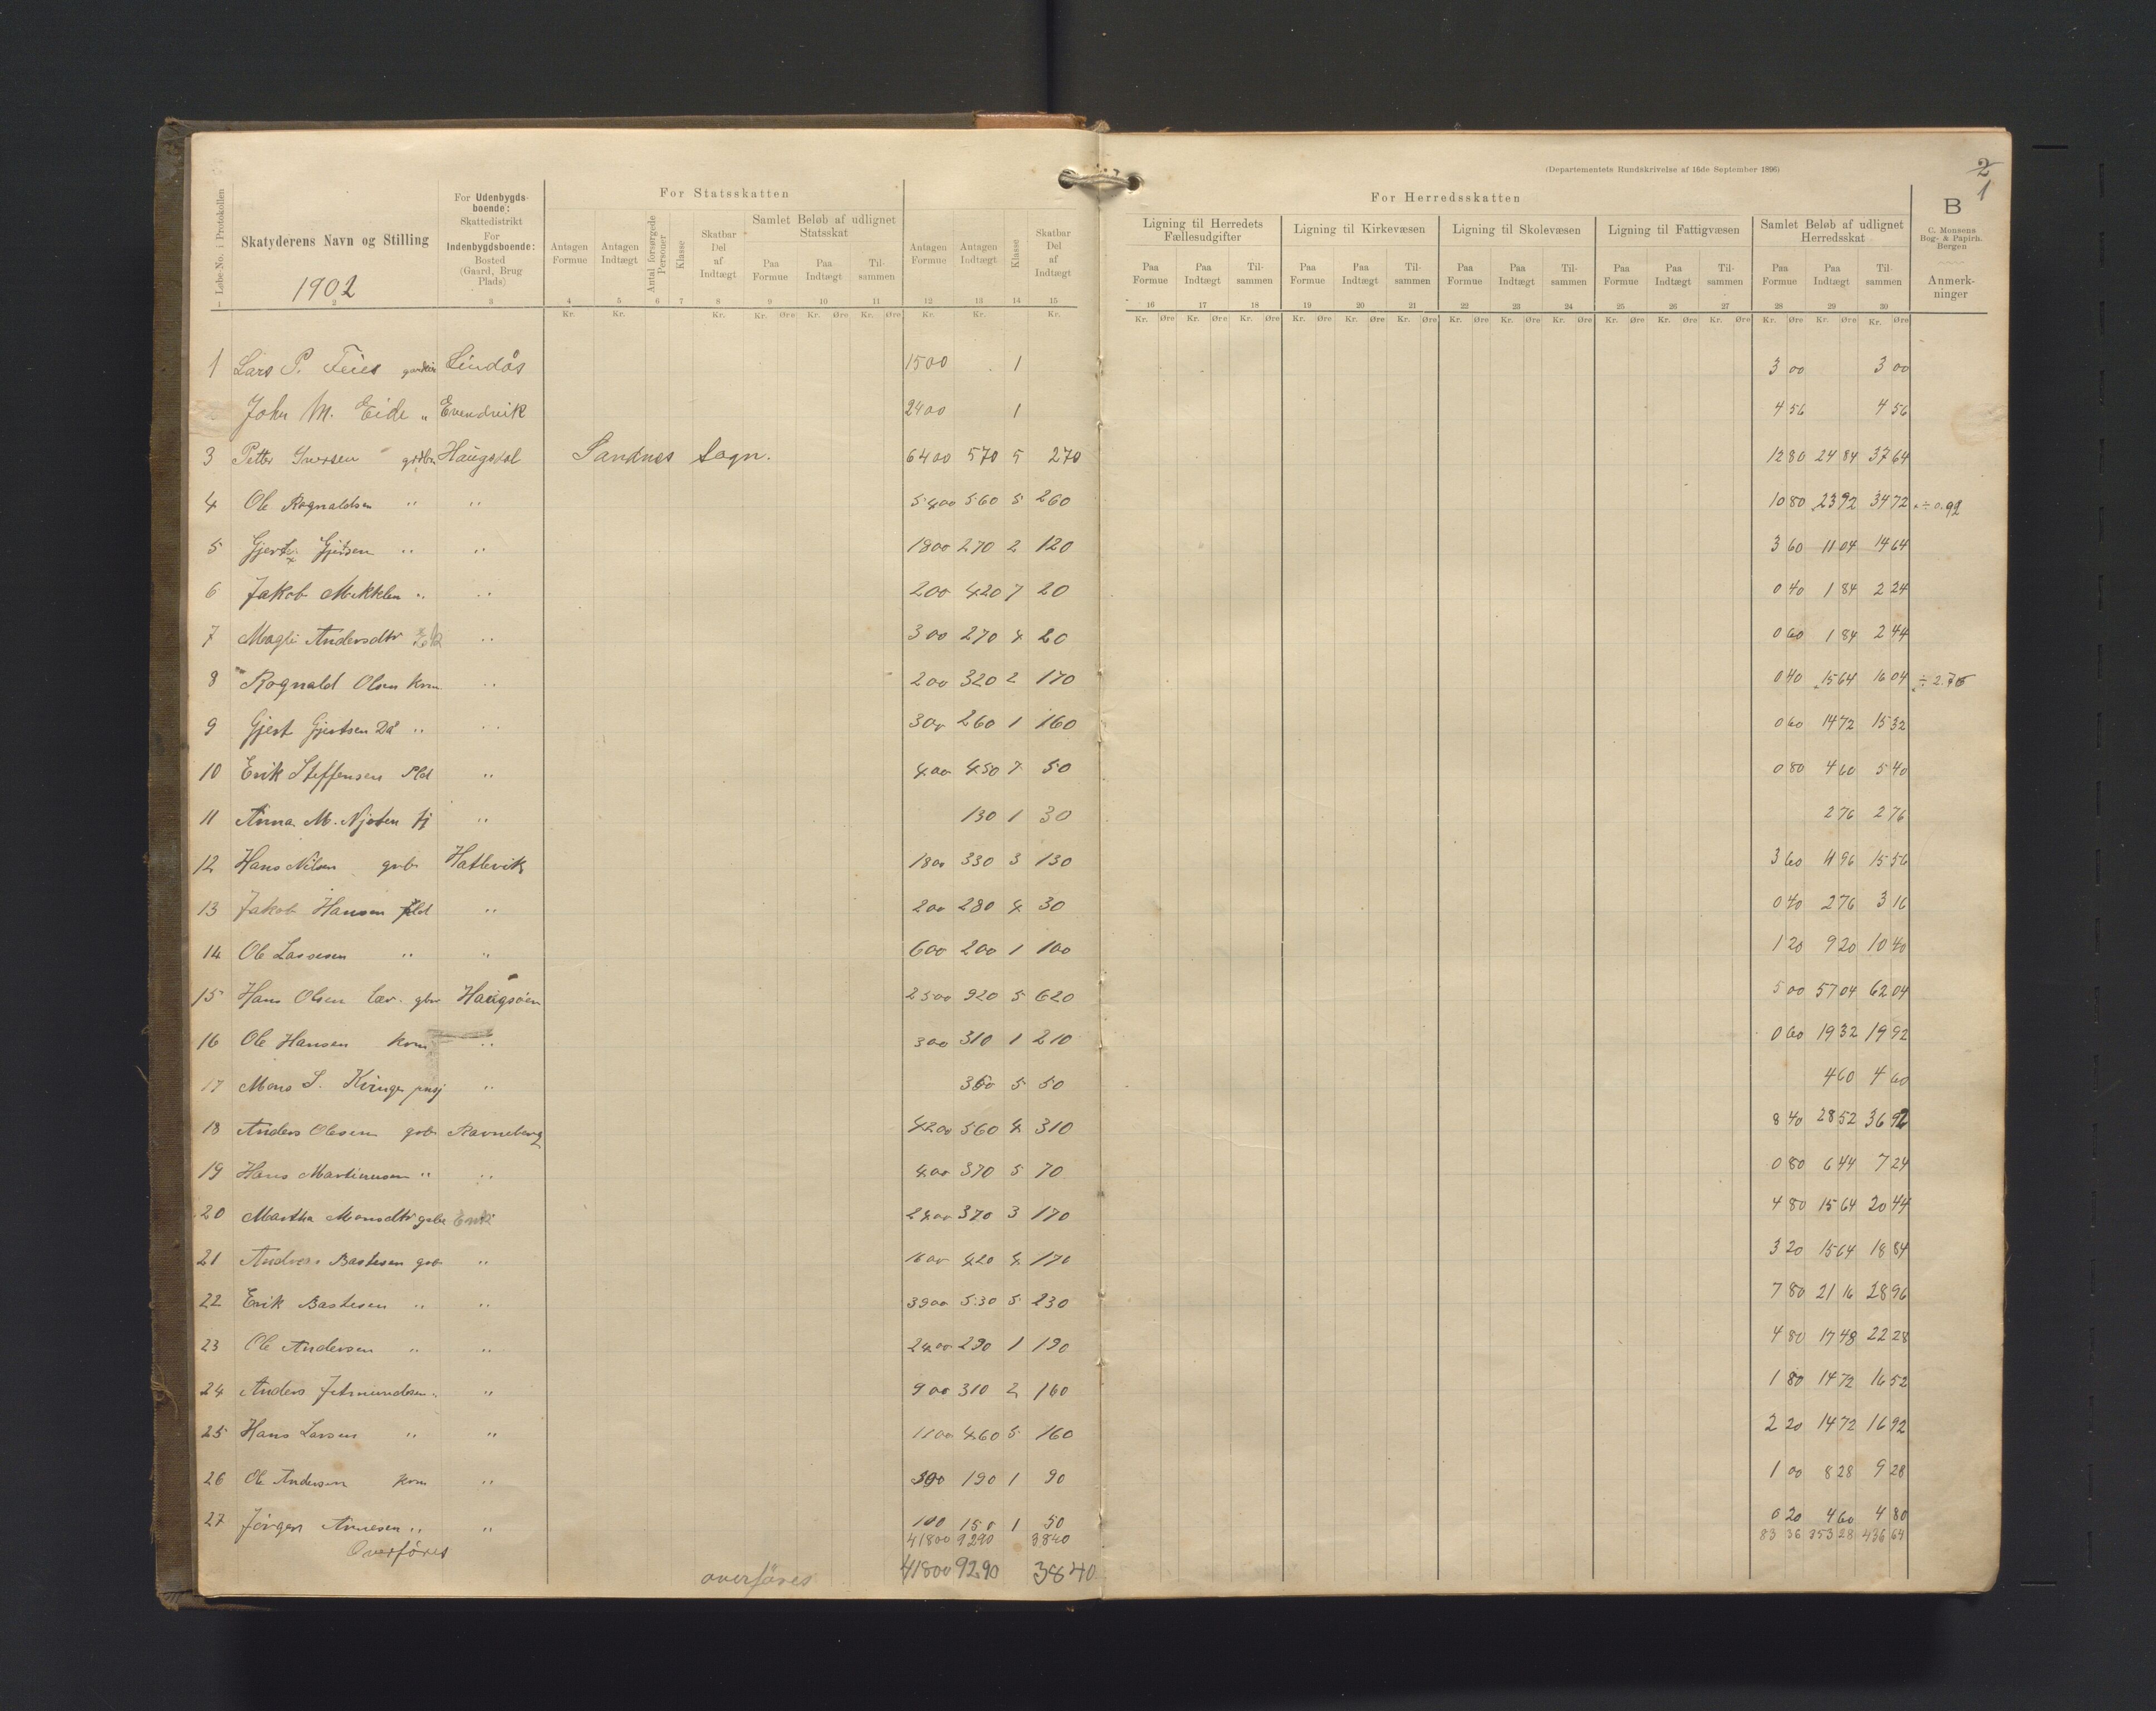 (Departementets Rundskrivelse af 16de September 1896)
2
1
B
C. Monsens
Bog- & Papirh.
Bergen
Løbe-No. i Protokollen
Skatyderens Navn og Stilling
1902
For Udenbygds-
boende:
Skattedistrikt
For
Indenbygdsboende:
Bosted
(Gaard, Brug
Plads)
For Statsskatten
Antagen Formue
Antagen Indtægt
Antal forsørgede Personer
Klasse
Skatbar Del af Indtægt
Samlet Beløb af udlignet Statsskat
Paa Formue Paa Indtægt Til- sammen
Antagen Formue
Antagen Indtægt
Klasse
Skatbar Del af Indtægt
For Herredsskatten
Ligning til Herredets Fællesudgifter
Paa Formue Paa Indtægt Til- sammen
Ligning til Kirkevæsen
Paa Formue Paa Indtægt Til- sammen
Ligning til Skolevæsen
Paa Formue Paa Indtægt Til- sammen
Ligning til Fattigvæsen
Paa Formue Paa Indtægt Til- sammen
Samlet Beløb af udlignet Herredsskat
Paa Formue Paa Indtægt Til- sammen
Anmerk- ninger
1 2 3 4 5 6 7 8 9 10 11 12 13 14 15 16 17 18 19 20 21 22 23 24 25 26 27 28 29 30
Kr. Kr. Kr. Kr. Øre Kr. Øre Kr. Øre Kr. Kr. Kr. Kr. Øre Kr. Øre Kr. Øre Kr. Øre Kr. Øre Kr. Øre Kr. Øre Kr. Øre Kr. Øre Kr. Øre Kr. Øre Kr. Øre Kr. Øre Kr. Øre Kr. Øre
1 Lars P. Feies Lindås 1500 1 3 00 3 00
John M. Eide " Evendvik 2400 1 4 56 4 56
3 Petter Iversen Haugsdal Sandnes Sogn. 6400 570 5 270 12 80 24 84 37 64
4 Ole Rognaldsen " " 5400 560 5 260 10 80 23 92 34 72 ÷ 0.92
5 Gjert Gjertsen " " 1800 270 2 120 3 60 11 04 14 64
6 Jakob Mikklen " " 200 420 7 20 0 40 1 84 2 24
7 Magli Andersdtr " 300 270 4 20 0 60 1 84 2 44
8 Rognald Olsen kvm " 200 320 2 170 0 40 15 64 16 04 ÷ 2.76
9 Gjert Gjertsen Då " " 300 260 1 160 0 60 14 72 15 32
10 Erik Steffensen Pld " 400 450 7 50 0 80 4 60 5 40
11 Anna M. Njøten tj " 130 1 30 2 76 2 76
12 Hans Nilsen gvbr Hatlevik 1800 330 3 130 3 60 11 96 15 56
13 Jakob Hansen pld " 200 280 4 30 0 40 2 76 3 16
14 Ole Lassesen " " 600 200 1 100 1 20 9 20 10 40
15 Hans Olsen lær. gbr Haugsøen 2500 920 5 620 5 00 57 04 62 04
16 Ole Hansen kvm " 300 310 1 210 0 60 19 32 19 92
17 Mons S. Kringen " 350 5 50 4 60 4 60
18 Anders Olesen gvbr Ravneberg 4200 560 4 310 8 40 28 52 36 92
19 Hans Martinusen " " 400 370 5 70 0 80 6 44 7 24
20 Martha Monsdtr gvbr 2400 370 3 170 4 80 15 64 20 44
21 Andreas Bastesen gvb " 1600 420 4 170 3 20 15 64 18 84
22 Erik Bastesen " " 3900 530 5 230 7 80 21 16 28 96
23 Ole Andersen " " 2400 290 1 190 4 80 17 48 22 28
24 Anders Jetmundsen " " 900 310 2 160 1 80 14 72 16 52
25 Hans Larsen " " 1100 460 5 160 2 20 14 72 16 92
26 Ole Andersen kvm " 190 1 90 1 00 8 28 9 28
27 Jörgen Arnesen " " 100 150 1 50 0 20 4 60 4 80
41800 9290 3840 83 36 353 28 436 64
Overføres
overføres 41800 9290 3840